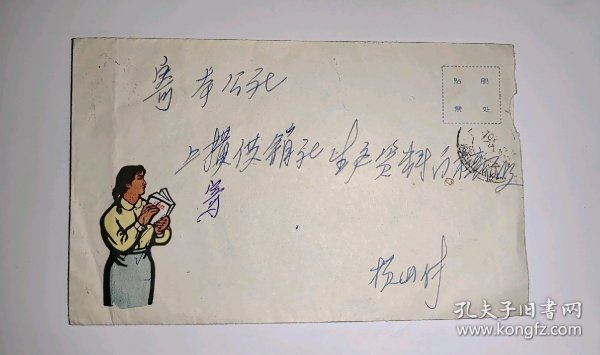 寄本公社
贴 邮
票 处
上攒供销社生产资料门市部
寄
横山付
孔夫子旧书网
www.kongfz.com